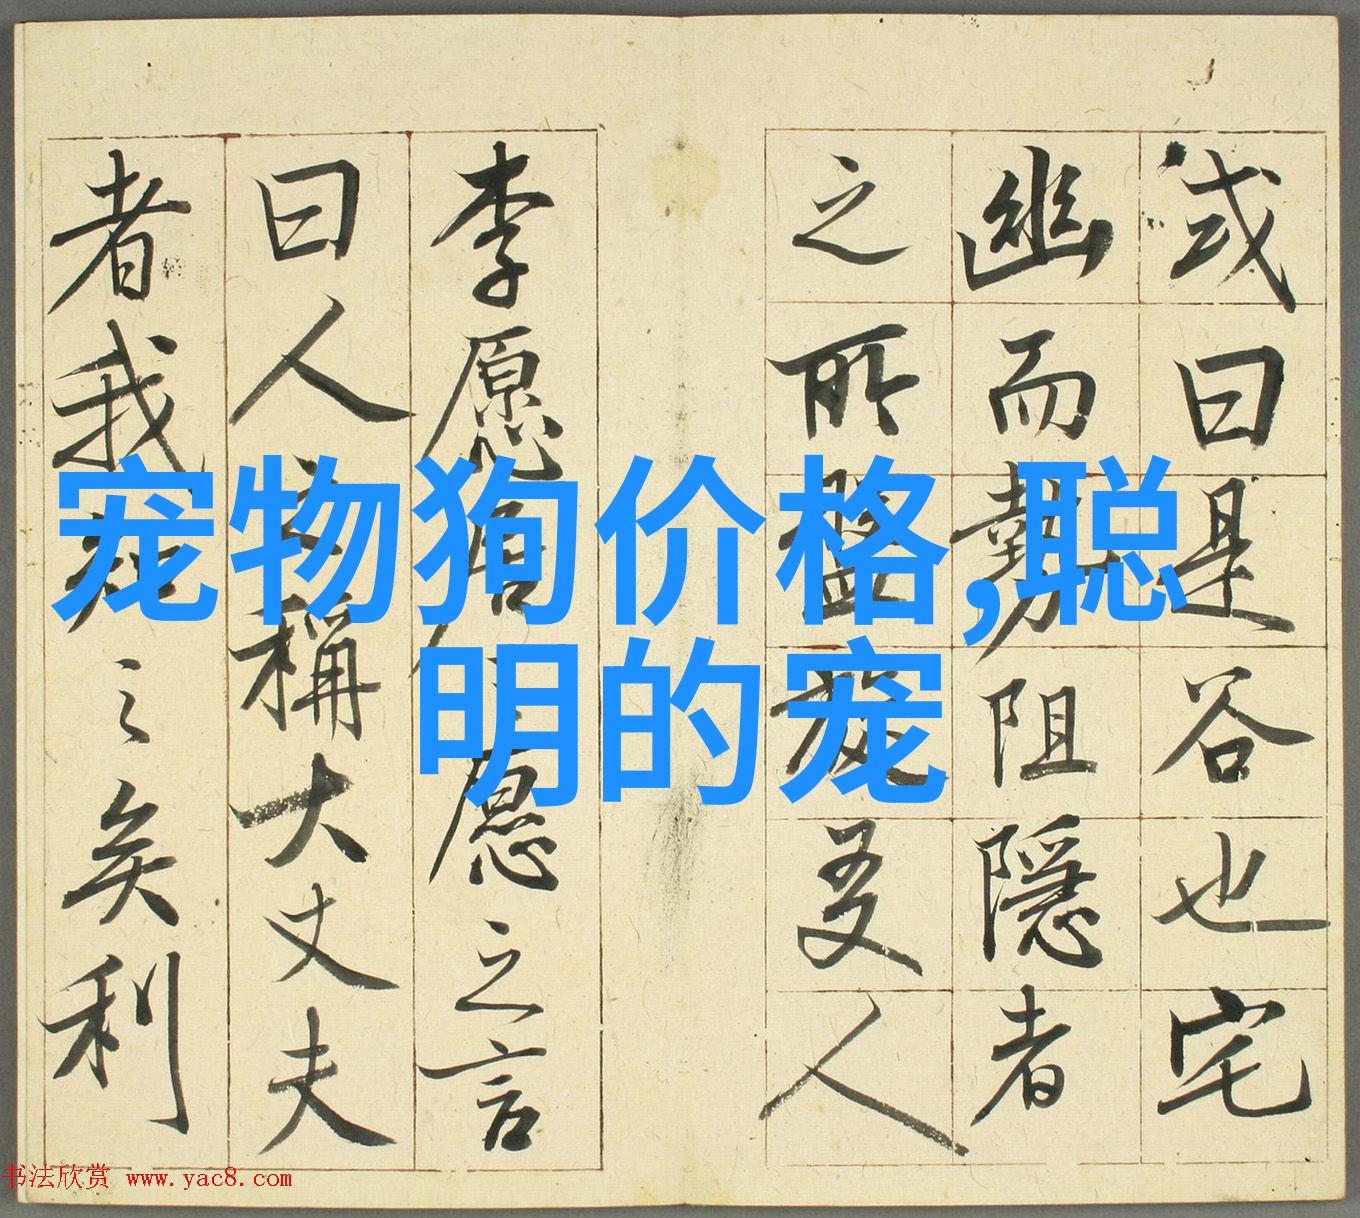 或曰是谷也宅
幽而勢阻隱者
之所盤旋友人
李愿居之愿之言
曰人之稱大丈夫
者我知之矣利
宠物狗价格,聪
明的宠
书法欣赏 www.yac8.com